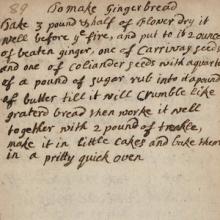 89 To make Gingerbread
Take 3 pound & half of flower dry it
well before ye fire, and put to it 2 ounce
of beaten ginger, one of Carriway seeds
and one of Coliander seeds with a quarter
of a pound of sugar rub into it a pound
of butter till it will crumble like
grated bread then worke it well
together with 2 pound of treakle,
make it in little cakes and bake them
in a pritty quick oven